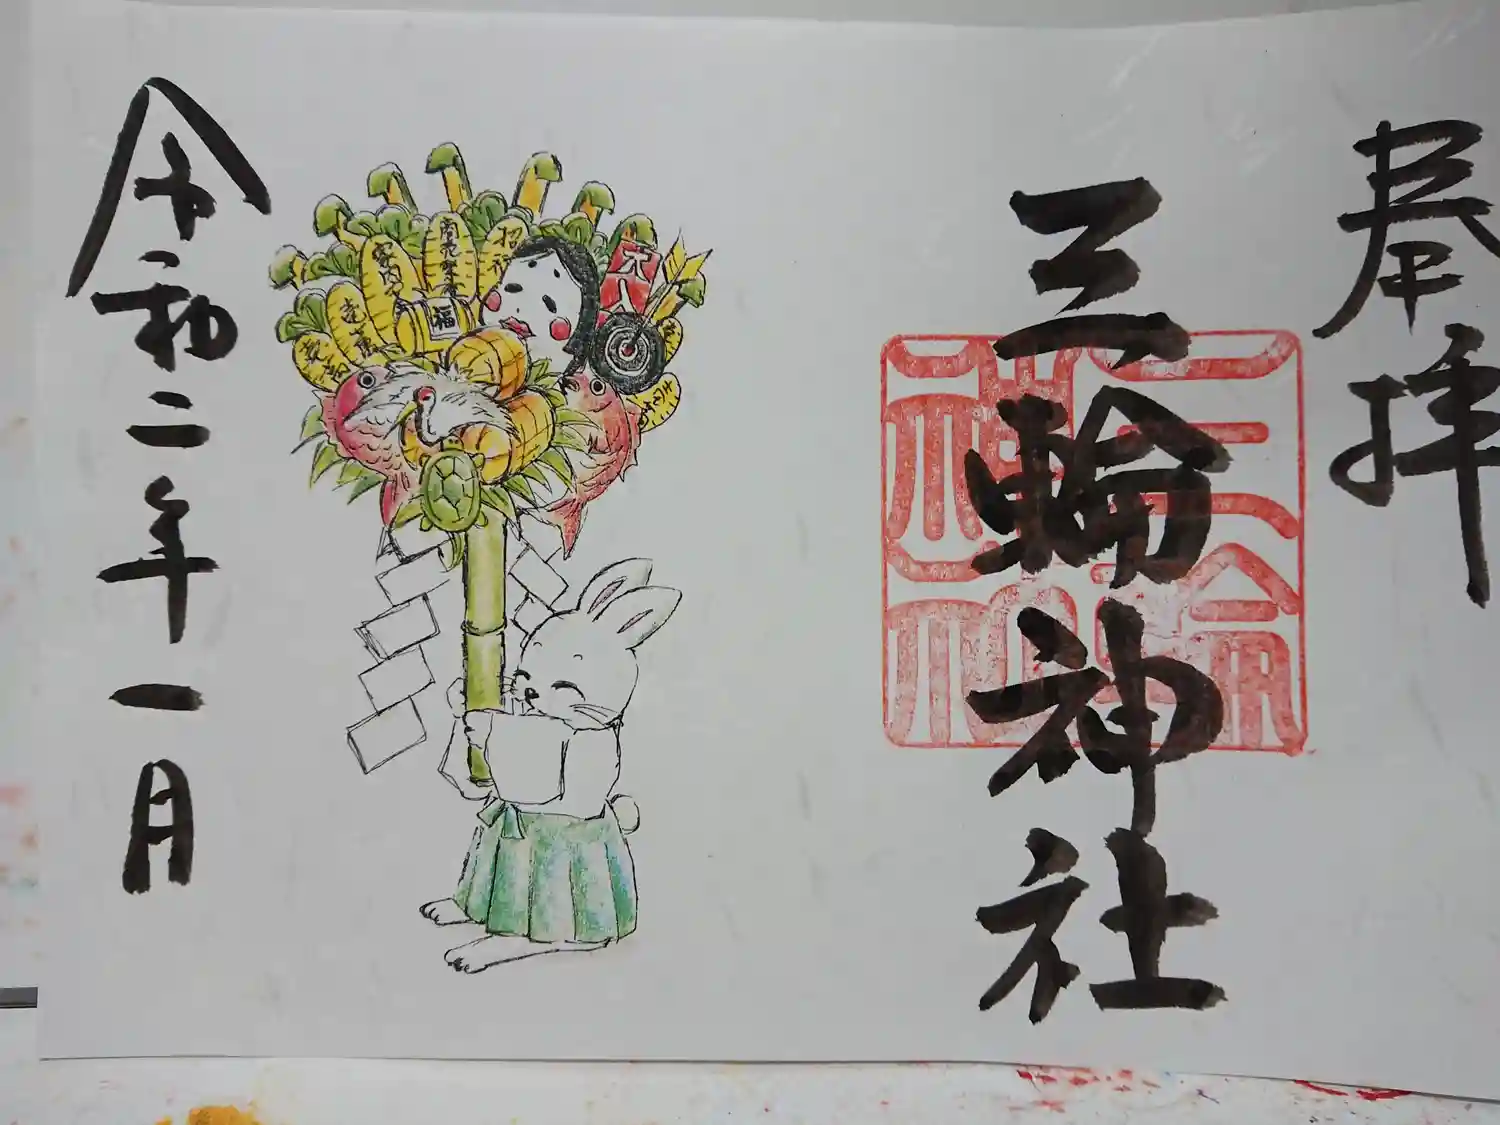 奉拝
三輪神社
三輪神社
大入
福
商売繁
招福
家内
令和二年一月